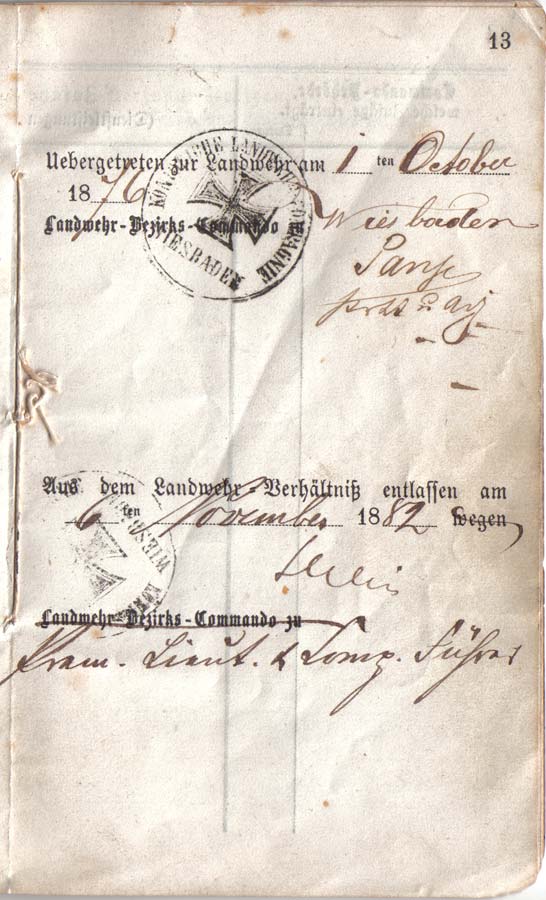 13
Uebergetreten zur Landwehr am 1 ten October
1876
Landwehr-Bezirks-Commando zu Wiesbaden
WIESBADEN
Aus dem Landwehr-Verhältniß entlassen am
6 ten November 1882 wegen
Landwehr-Bezirks-Commando zu
Prem. Lieut. & Comp. Führer